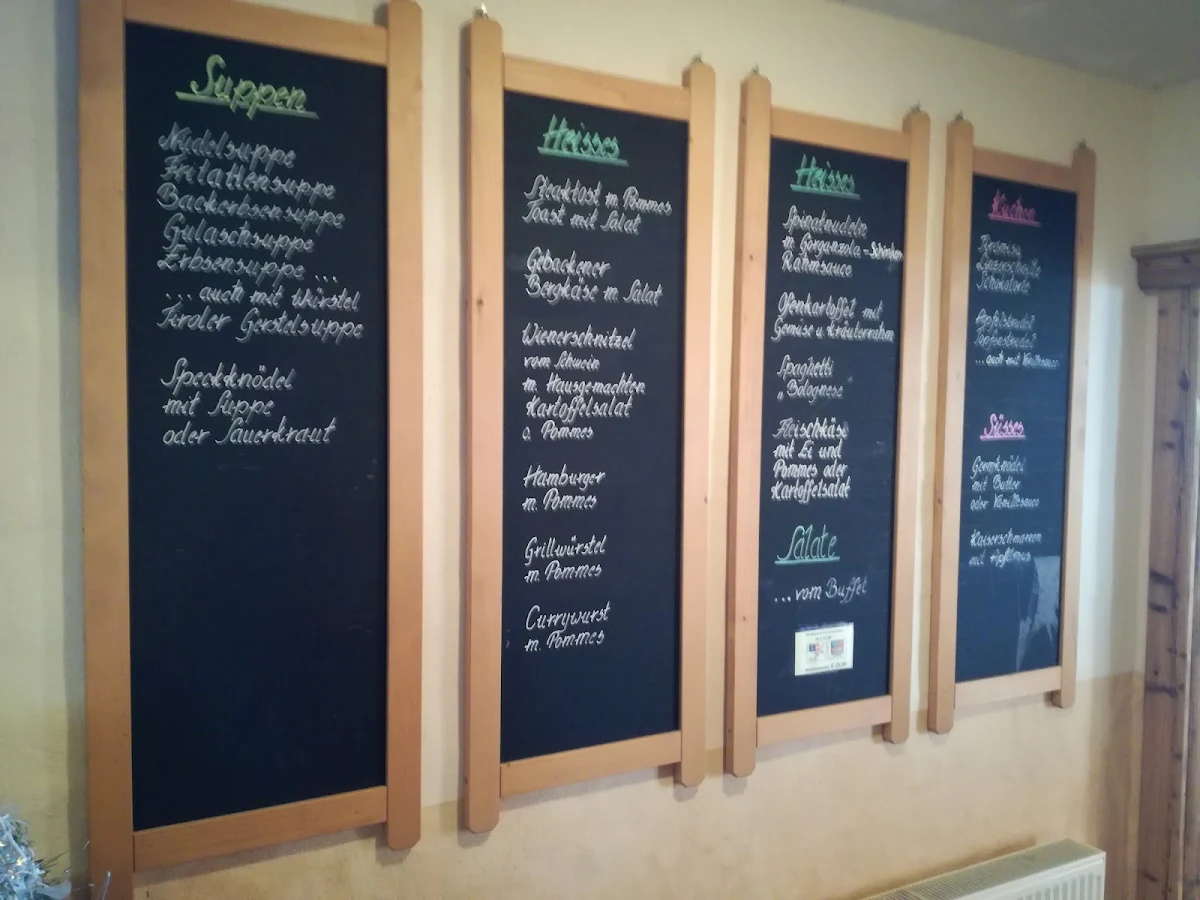 Suppen
Nudelsuppe
Fritattensuppe
Backerbsensuppe
Gulaschsuppe
Erbsensuppe ...
... auch mit Würstel
Tiroler Gerstelsuppe
Speckknödel
mit Suppe
oder Sauerkraut
Heisses
Steaktost m. Pommes
Toast mit Salat
Gebackener
Bergkäse m. Salat
Wienerschnitzel
vom Schwein
m. Hausgemachten
Kartoffelsalat
o. Pommes
Hamburger
m. Pommes
Grillwürstel
m. Pommes
Currywurst
m. Pommes
Heisses
Spinatnudeln
in Gorganzola-Schinken
Rahmsauce
Ofenkartoffel mit
Gemüse u. Kräuterrahm
Spaghetti
„Bolognese"
Fleischkäse
mit Ei und
Pommes oder
Kartoffelsalat
Salate
... vom Buffet
Kuchen
Tiramisu
Apfelstrudel
Topfenstrudel
... auch mit Vanillesauce
Süsses
Germknödel
mit Butter
oder Vanillesauce
Kaiserschmarren
mit Apfelmus